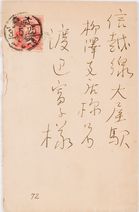 信越線大屋駅
柳澤支店様方
渡辺富子様
72